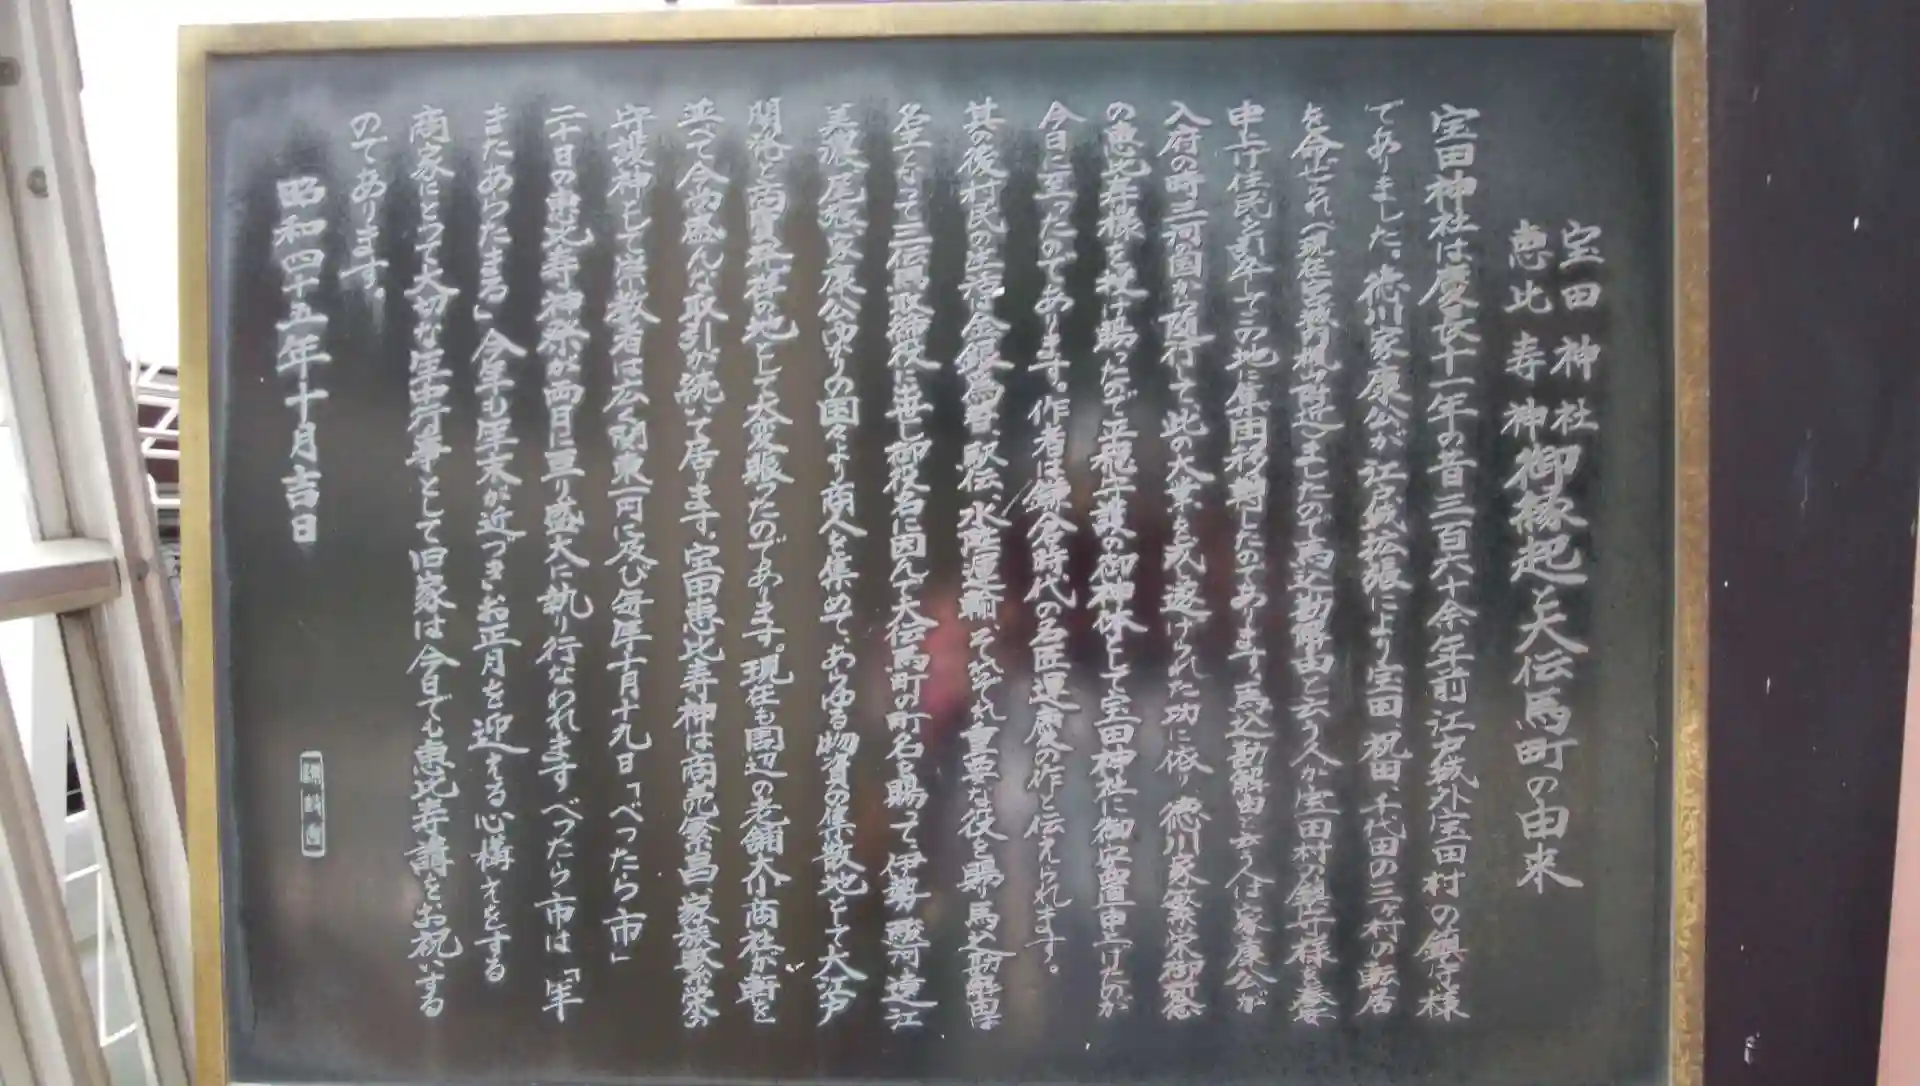 宝田神社
恵比寿神
御縁起と大伝馬町の由来
宝田神社は慶長十一年の昔三百六十余年前江戸城外宝田村の鎮守様
でありました。徳川家康公が江戸城拡張により宝田、祝田、千代田の三ヶ村の転居
を命ぜられ(現在宮城内楓山附近)ましたので馬込勘解由と云う人が宝田村の鎮守様を奉安
申上げ住民を引率してこの地に集団移動したのであります。馬込勘解由と云う人は家康公が
入府の時三河国から随行して此の大業を成し遂げられた功に依り、徳川家繁栄御祈念
の恵比寿様を授け賜ったので平穏守護の御神体として宝田神社に御安置申上げたのが
今日に至ったのであります。作者は鎌倉時代の名匠運慶の作と伝えられます。
其の後村民の生活は金銀為替、駅伝、水陸運輸、それぞれ重要な役を賜り馬込勘解由は
名主となって三伝馬取締役に出世し御役名に因んで大伝馬町の町名を賜って伊勢駿河遠江
美濃尾張家康公由かりの国々より商人を集めて、あらゆる物資の集散地として大江戸
開発と商賣発祥の地として大変賑ったのであります。現在も周辺の老舗大小商社が軒を
並べて今尚盛んな取引が続いて居ります。宝田恵比寿神は商売繁昌、家族繁栄の
守護神として崇敬者は広く関東一円に及び毎年十月十九日「べったら市」
二十日の恵比寿神祭が両日に亘り盛大に執り行なわれますべったら市は「年
またあらたまる」今年も年末が近づきお正月を迎える心構えをする
商家にとって大切な年中行事として旧家は今日でも恵比寿講をお祝いする
のであります。
昭和四十五年十月吉日